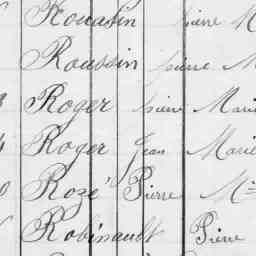 Rouasin pierre M
Roussin pierre M
Roger pierre Marie
Roger Jean Marie
Rozé Pierre M
Robinault Pierre